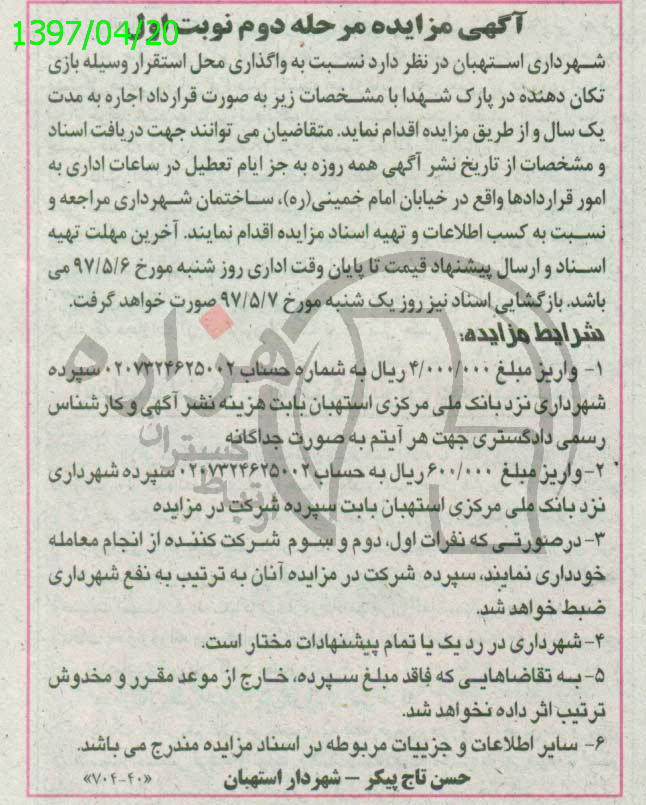 1397/04/20
آگهی مزایده مرحله دوم نوبت اول
شهرداری استهبان در نظر دارد نسبت به واگذاری محل استقرار وسیله بازی
تکان دهنده در پارک شهدا با مشخصات زیر به صورت قرارداد اجاره به مدت
یک سال و از طریق مزایده اقدام نماید. متقاضیان می توانند جهت دریافت اسناد
و مشخصات از تاریخ نشر آگهی همه روزه به جز ایام تعطیل در ساعات اداری به
امور قراردادها واقع در خیابان امام خمینی(ره)، ساختمان شهرداری مراجعه و
نسبت به کسب اطلاعات و تهیه اسناد مزایده اقدام نمایند. آخرین مهلت تهیه
اسناد و ارسال پیشنهاد قیمت تا پایان وقت اداری روز شنبه مورخ ۹۷/۵/۶ می
باشد. بازگشایی اسناد نیز روز یک شنبه مورخ ۹۷/۵/۷ صورت خواهد گرفت.
شرایط مزایده:
۱- واریز مبلغ ۴/۰۰۰/۰۰۰ ریال به شماره حساب ۰۲۰۷۳۲۴۶۲۵۰۰۲ سپرده
شهرداری نزد بانک ملی مرکزی استهبان بابت هزینه نشر آگهی و کارشناس
رسمی دادگستری جهت هر آیتم به صورت جداگانه
۲-واریز مبلغ ۶۰۰/۰۰۰ ریال به حساب ۰۲۰۷۳۲۴۶۲۵۰۰۲ سپرده شهرداری
نزد بانک ملی مرکزی استهبان بابت سپرده شرکت در مزایده
۳-درصورتی که نفرات اول، دوم و سوم شرکت کننده از انجام معامله
خودداری نمایند، سپرده شرکت در مزایده آنان به ترتیب به نفع شهرداری
ضبط خواهد شد.
۴- شهرداری در رد یک یا تمام پیشنهادات مختار است.
۵- به تقاضاهایی که فاقد مبلغ سپرده، خارج از موعد مقرر و مخدوش
ترتیب اثر داده نخواهد شد.
۶- سایر اطلاعات و جزییات مربوطه در اسناد مزایده مندرج می باشد.
حسن تاج پیکر – شهردار استهبان «۷۰۴-۴۰»
هزاره
گستران
ارتباط